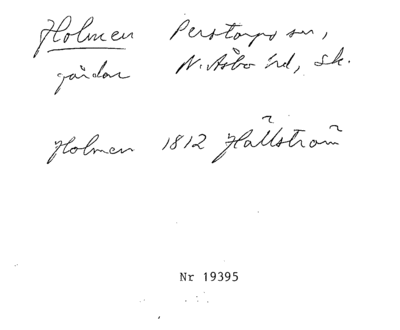 Holmen Perstorps sn,
gårdar N. Åsbo hd, Sk.
Holmen 1812 Hallström
Nr 19395